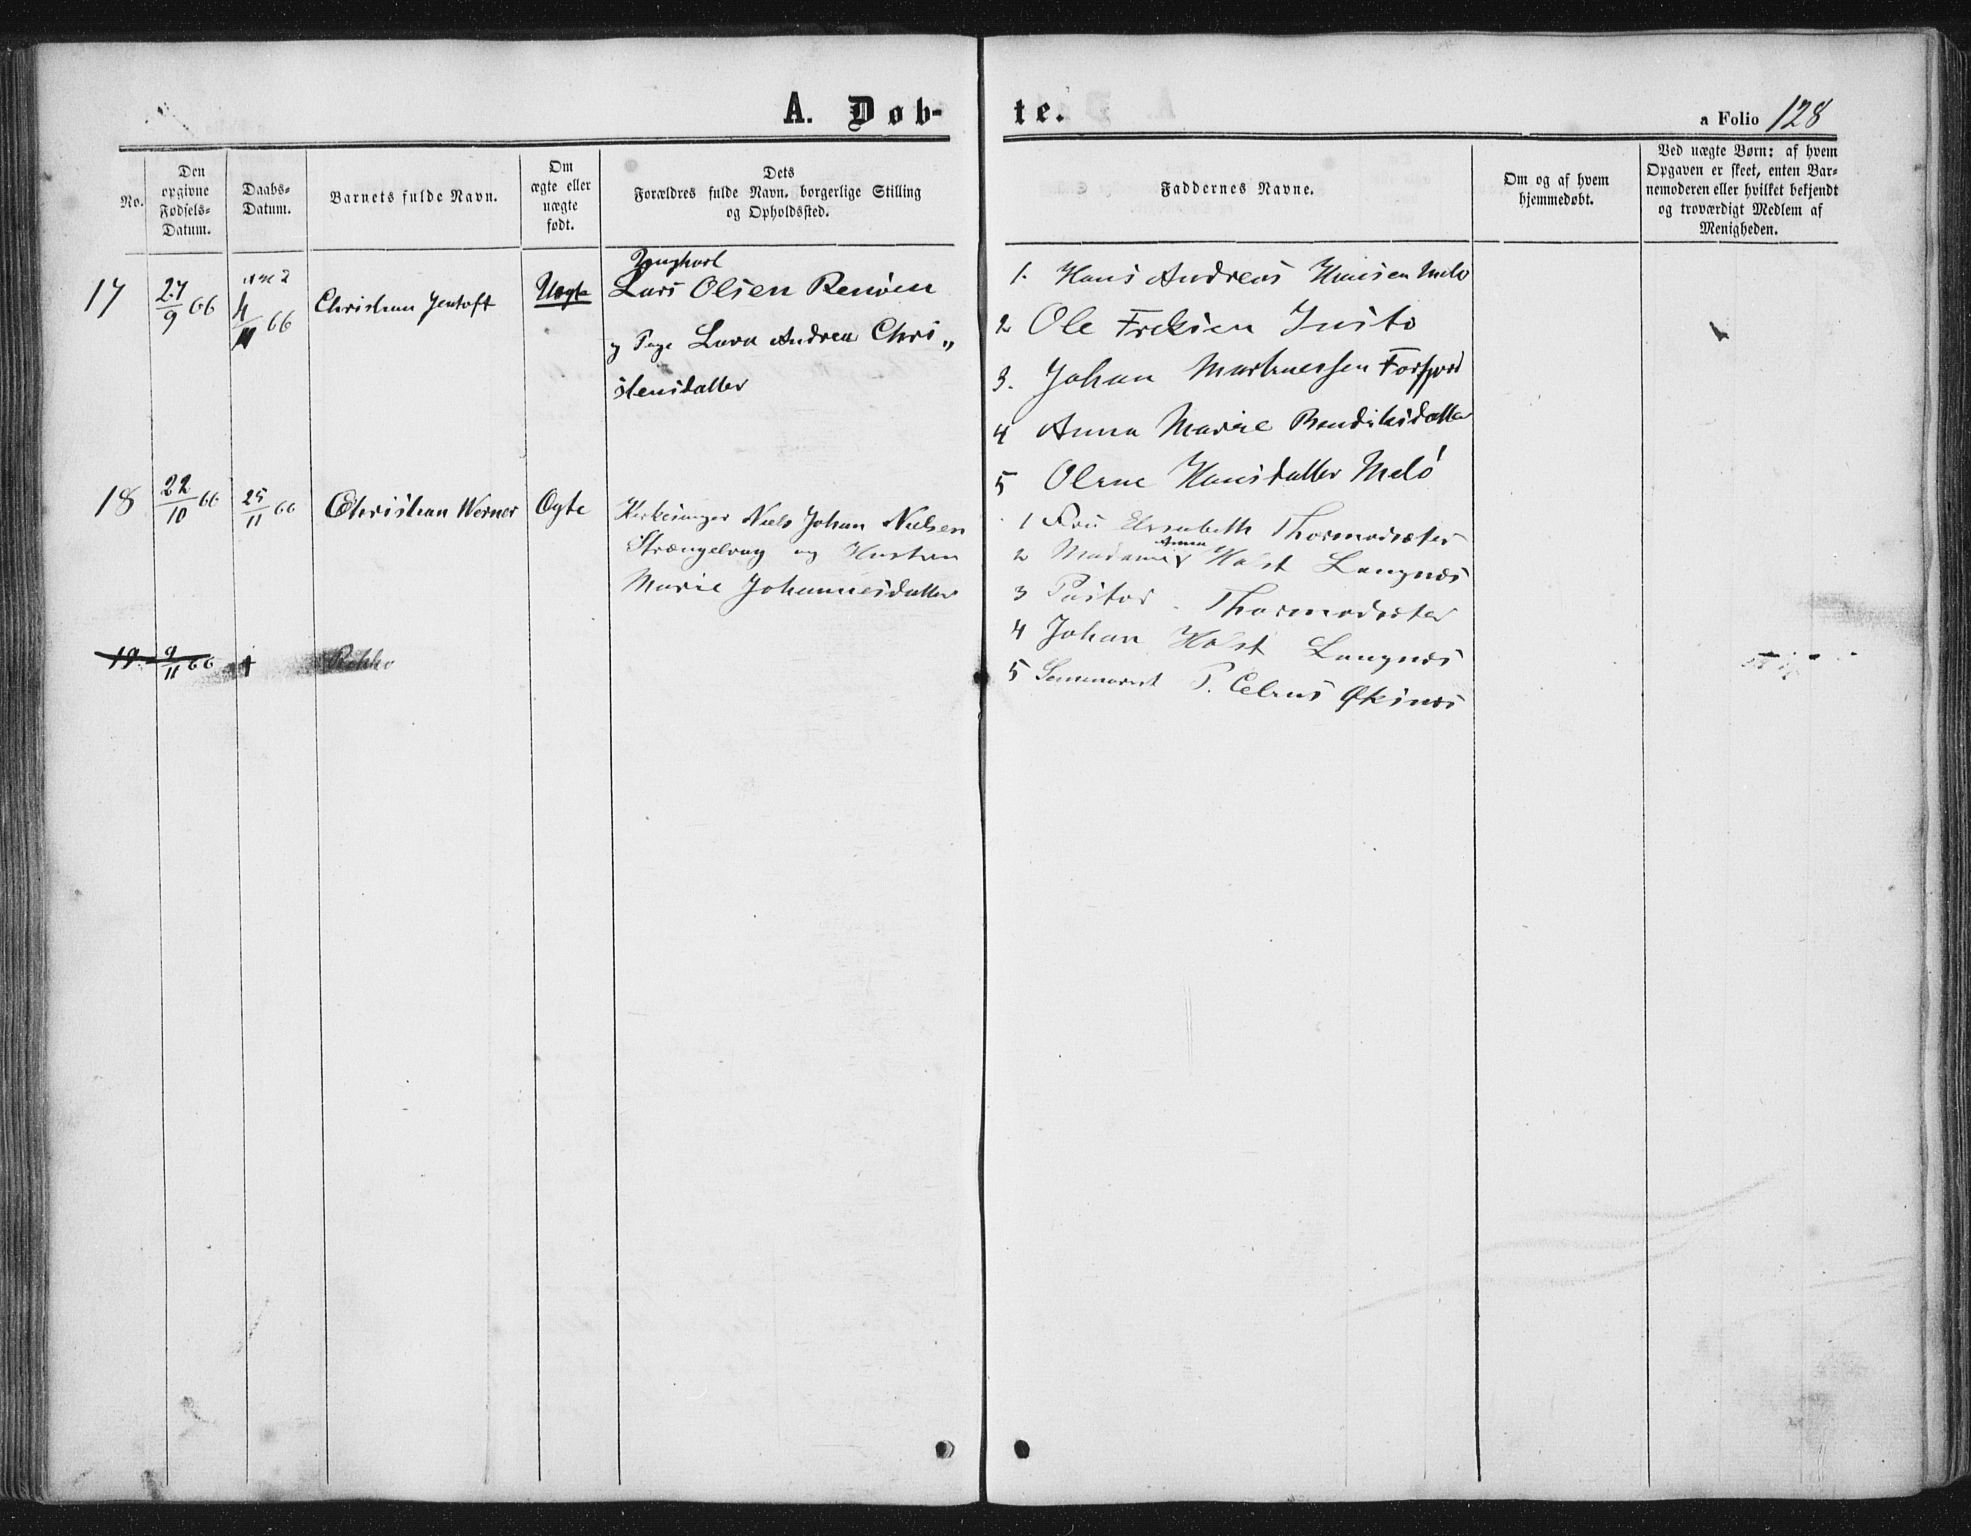 A. Døb-
te.
a Folio 128
No.
Den opgivne Fødsels-Datum.
Daabs-Datum.
Barnets fulde Navn.
Om ægte eller uægte født.
Dets Forældres fulde Navn, borgerlige Stilling og Opholdssted.
Faddernes Navne.
Om og af hvem hjemmedøbt.
Ved uægte Børn: af hvem Opgaven er skeet, enten Barnemoderen eller hvilket bekjendt og troværdigt Medlem af Menigheden.
17 27/9 66 4/11 66 Christian Jentoft Uægte
Ungkarl
Lars Olsen Renøen
og Pige Lava Andrea Chri„
stensdatter
1. Hans Andreas Hansen Melø
2 Ole Ericksen
3. Johan Martinessen Forsjord
4 Anna Marie Bendiksdatter
5 Oline Hansdatter Melø
18 22/10 66 25/11 66 Christian Werner Ægte
Kirkesanger Niels Johan Nielsen
Strængelvag og Hustru
Marie Johannesdatter
1 Fru Elisabeth Thormodsæter
2 Madame Anna Holst Langnæs
3 Pastor Thormodsæter
4 Johan Holst Langnæs
5 Seminarist P. Øksnæs
19 9/11 66